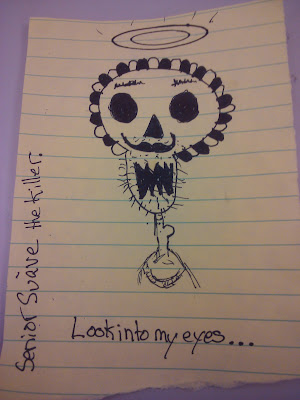 Senior Suàve the Killer.
Look into my eyes...